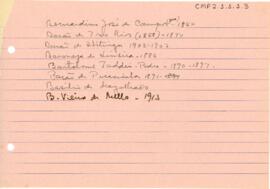 CMP2.3.3.3
Bernardino José de Campos 1864
Barão de Três Rios (1868) - 1874
Barão de Ibitinga 1902-1903
Baroneza de Limeira - 1886
Bartolomé Taddei, Padre - 1890-1897
Barão de Piracicaba 1891
Basílio de Magalhães
B. Vieira de Mello - 1913